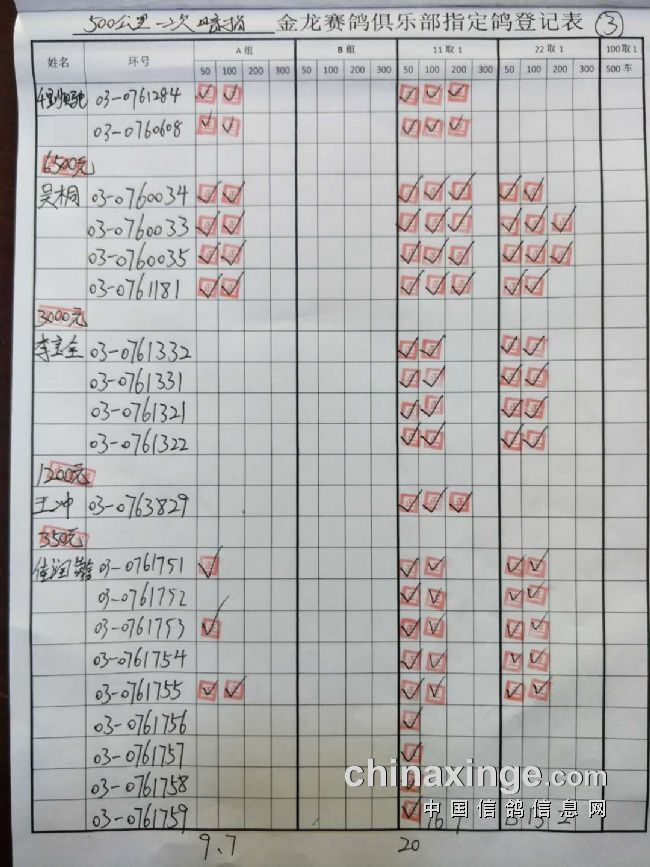 500公里二次暗指 金龙赛鸽俱乐部指定鸽登记表 ③
姓名 环号 A 组 B 组 11 取 1 22 取 1 100 取 1
50 100 200 300 50 100 200 300 50 100 200 300 50 100 200 300 500 车
03-0761284 ✓ ✓ ✓ ✓ ✓
03-0760608 ✓ ✓ ✓ ✓ ✓
6500元
吴桐 03-0760034 ✓ ✓ ✓ ✓ ✓ ✓ ✓
03-0760033 ✓ ✓ ✓ ✓ ✓ ✓ ✓ ✓
03-0760035 ✓ ✓ ✓ ✓ ✓ ✓ ✓ ✓
03-0761181 ✓ ✓ ✓ ✓ ✓ ✓ ✓
3000元
李立全 03-0761332 ✓ ✓ ✓ ✓
03-0761331 ✓ ✓ ✓ ✓
03-0761321 ✓ ✓ ✓ ✓
03-0761322 ✓ ✓ ✓ ✓
1200元
王冲 03-0763829 ✓ ✓ ✓
350元
03-0761751 ✓ ✓ ✓ ✓ ✓
03-0761752 ✓ ✓ ✓ ✓
03-0761753 ✓ ✓ ✓ ✓ ✓
03-0761754 ✓ ✓ ✓ ✓
03-0761755 ✓ ✓ ✓ ✓ ✓ ✓
03-0761756 ✓
03-0761757 ✓
03-0761758 ✓
03-0761759 ✓
9.7 20
chinaxinge.com
中国信鸽信息网